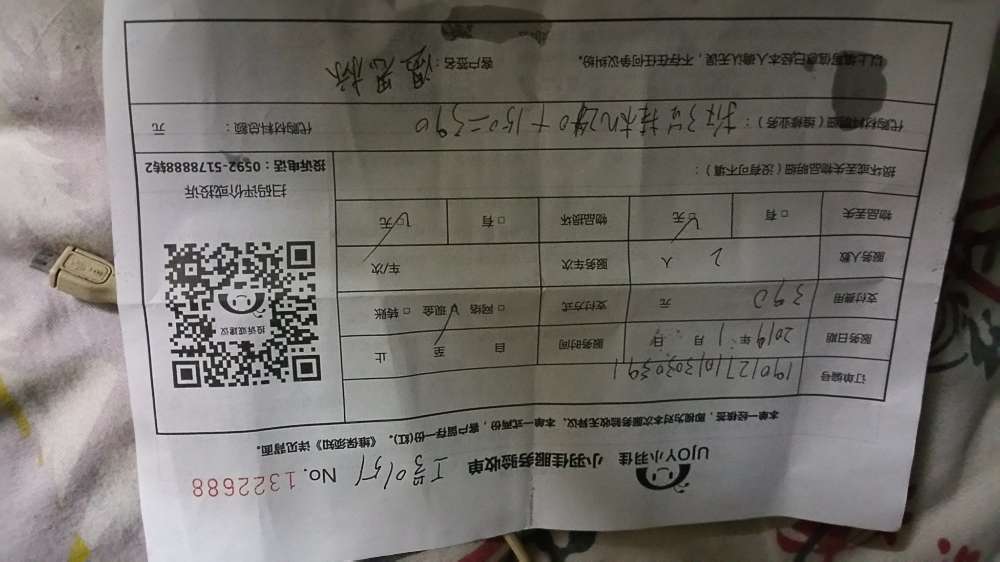 UJOY小羽佳 小羽佳服务验收单 工号0151 No. 1322688
本单一经核签，即视为对本次服务验收无异议，本单一式两份，客户留存一份(红)。《维保须知》详见背面。
订单编号
服务日期 2019年1月 日 服务时间 自 至 止
支付费用 390 元 支付方式 □ 网络 □ 现金 □ 转账
服务人数 2 人 服务车次 车/次
物品丢失 □ 有 □ 无 物品损坏 □ 有 □ 无
损坏或丢失物品明细（没有可不填）：
投诉或建议
扫码评价或投诉
投诉电话：0592-5178888转2
代购材料明细（维修业务）： 拆3台挂机240+150=390 代购材料总额： 元
以上填写信息已经本人确认无误，不存在任何争议纠纷。 客户签名：